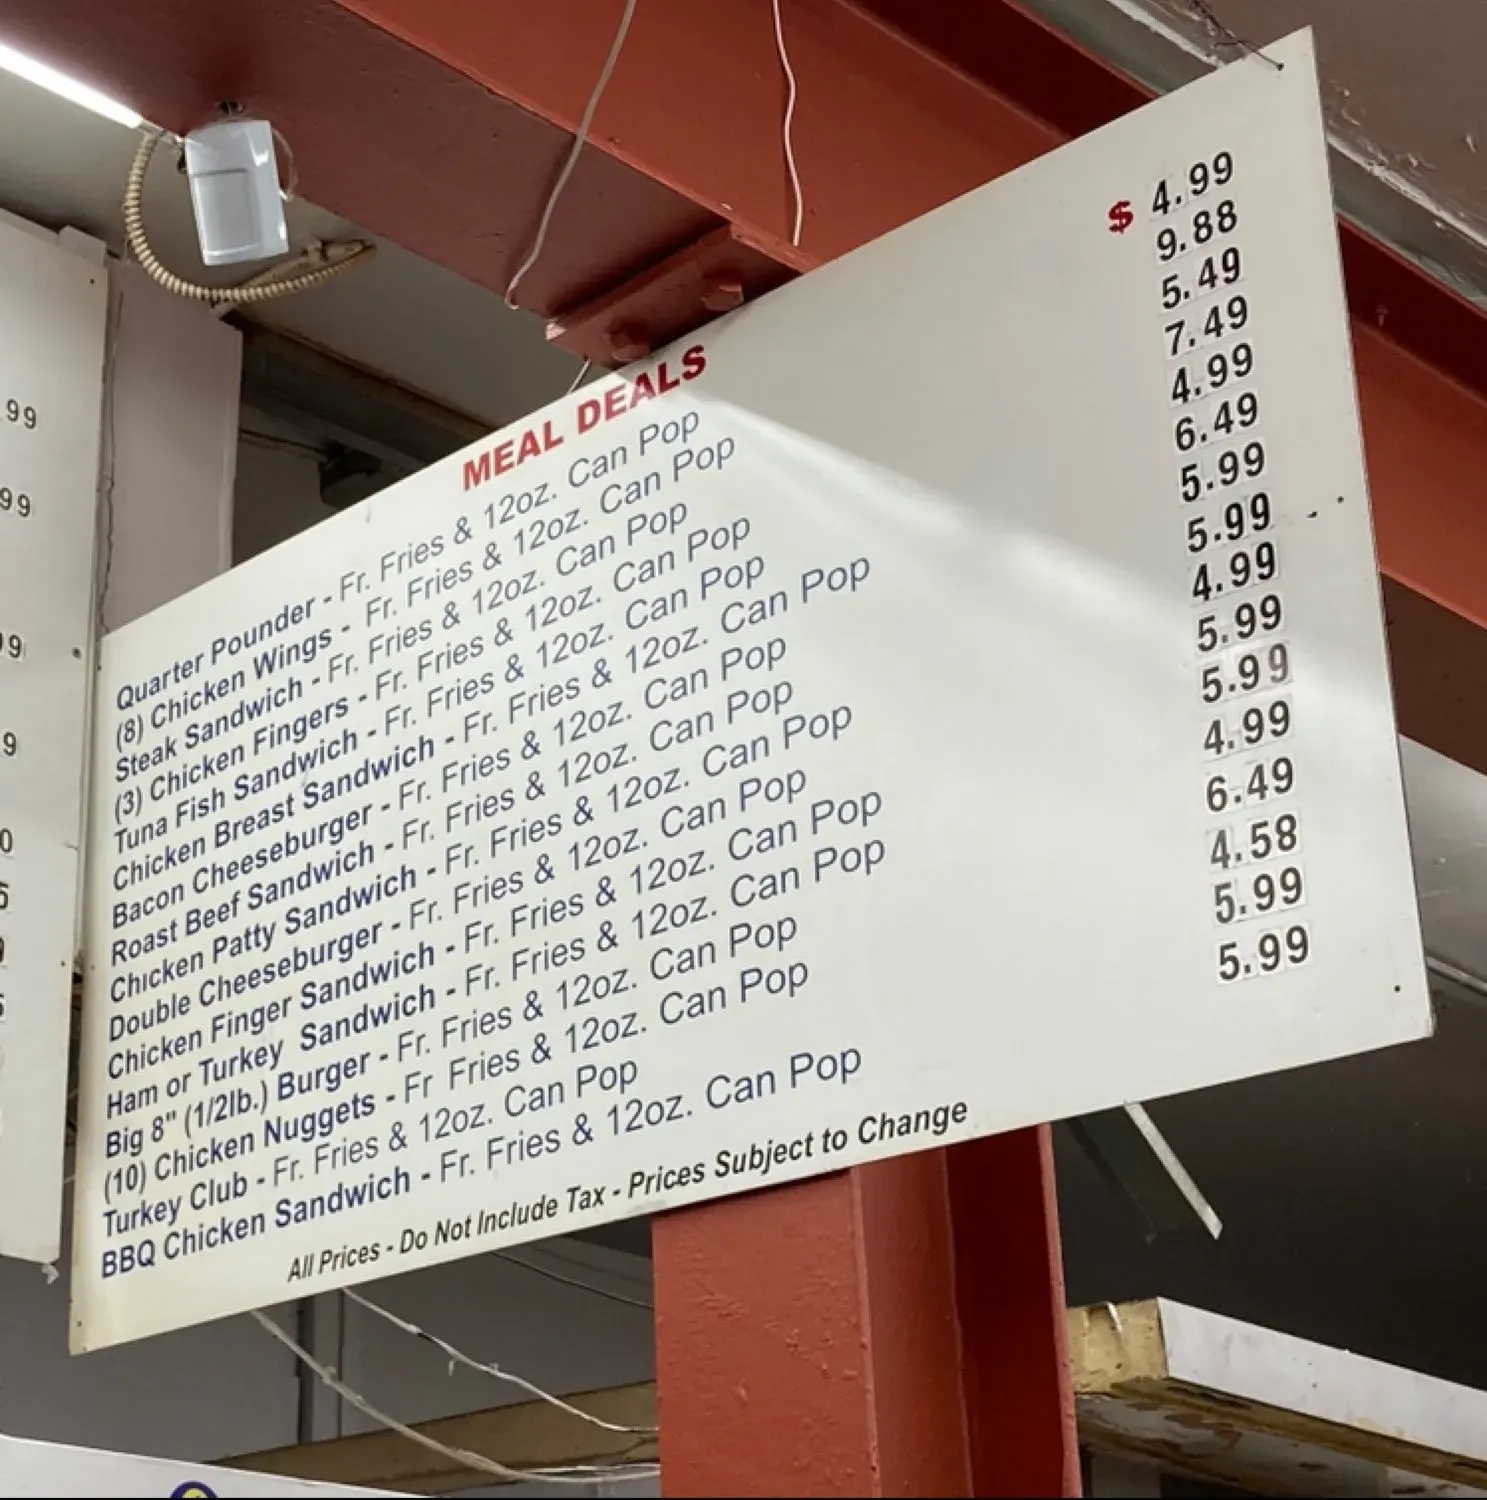 MEAL DEALS
Quarter Pounder - Fr. Fries & 12oz. Can Pop $ 4.99
(8) Chicken Wings - Fr. Fries & 12oz. Can Pop 9.88
Steak Sandwich - Fr. Fries & 12oz. Can Pop 5.49
(3) Chicken Fingers - Fr. Fries & 12oz. Can Pop 7.49
Tuna Fish Sandwich - Fr. Fries & 12oz. Can Pop 4.99
Chicken Breast Sandwich - Fr. Fries & 12oz. Can Pop 6.49
Bacon Cheeseburger - Fr. Fries & 12oz. Can Pop 5.99
Roast Beef Sandwich - Fr. Fries & 12oz. Can Pop 5.99
Chicken Patty Sandwich - Fr. Fries & 12oz. Can Pop 4.99
Double Cheeseburger - Fr. Fries & 12oz. Can Pop 5.99
Chicken Finger Sandwich - Fr. Fries & 12oz. Can Pop 5.99
Ham or Turkey Sandwich - Fr. Fries & 12oz. Can Pop 4.99
Big 8" (1/2lb.) Burger - Fr. Fries & 12oz. Can Pop 6.49
(10) Chicken Nuggets - Fr Fries & 12oz. Can Pop 4.58
Turkey Club - Fr. Fries & 12oz. Can Pop 5.99
BBQ Chicken Sandwich - Fr. Fries & 12oz. Can Pop 5.99
All Prices - Do Not Include Tax - Prices Subject to Change